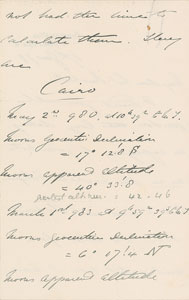 not had the time to
calculate them. They
are
Cairo
May 2nd 980. At 10h 59m G.M.T.
Moons Geocentric Declination
= 17° 12'.8 N
Moons apparent altitude
= 40° 33'.8
: 42.46
March 1st 983. At 9h 59m G.M.T.
Moons Geocentric Declination
= 6° 17'.4 N
Moons apparent altitude